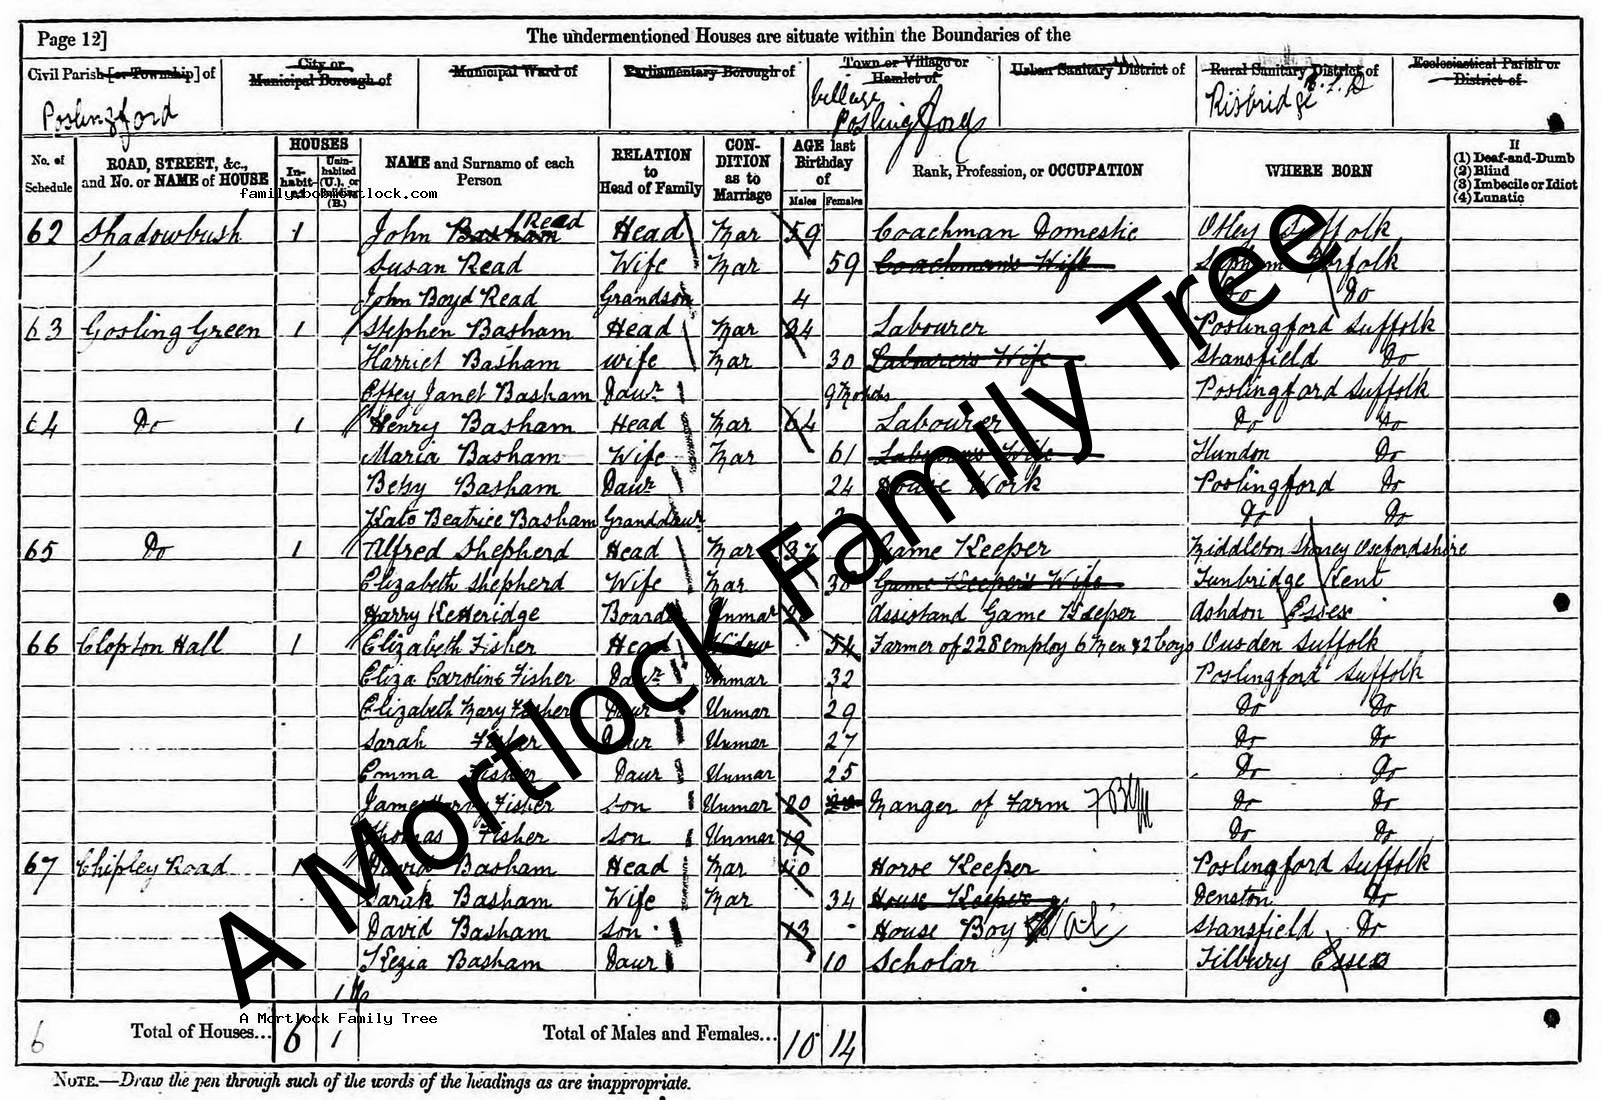 Page 12]
The undermentioned Houses are situate within the Boundaries of the
Civil Parish [or Township] of
City or Municipal Borough of
Municipal Ward of
Parliamentary Borough of
Town or Village or Hamlet of
Urban Sanitary District of
Rural Sanitary District of
Ecclesiastical Parish or District of
Poslingford
Village Poslingford
Risbridge R.S.D
No. of Schedule
ROAD, STREET, &c., and No. or NAME of HOUSE
HOUSES
In-habit-ed
Unin-habited (U.), or Building (B.)
NAME and Surname of each Person
RELATION to Head of Family
CON-DITION as to Marriage
AGE last Birthday of
Males Females
Rank, Profession, or OCCUPATION
WHERE BORN
If
(1) Deaf-and-Dumb
(2) Blind
(3) Imbecile or Idiot
(4) Lunatic
62 Shadowbush 1 John Basham Read Head Mar 59 Coachman Domestic Otley Suffolk
Susan Read Wife Mar 59 Coachman's Wife Norfolk
John Boyd Read Grandson 4 Do Do
63 Gosling Green 1 Stephen Basham Head Mar 34 Labourer Poslingford Suffolk
Harriet Basham Wife Mar 30 Labourer's Wife Stansfield Do
Effey Janet Basham Daur 9 Months Poslingford Suffolk
64 Do 1 Henry Basham Head Mar 64 Labourer Do Do
Maria Basham Wife Mar 61 Labourer's Wife Hundon Do
Betsy Basham Daur 24 House Work Poslingford Do
Kate Beatrice Basham Granddaur Do Do
65 Do 1 Alfred Shepherd Head Mar Game Keeper Middleton Stoney Oxefordshire
Elizabeth Shepherd Wife Mar Game Keeper's Wife Tunbridge Kent
Harry Ketteridge Boarder Unmar Assistand Game Keeper Ashdon Essex
66 Clopton Hall 1 Elizabeth Fisher Head Widow 54 Farmer of 228 employ 6 Men & 2 boys Ousden Suffolk
Eliza Caroline Fisher Daur Unmar 32 Poslingford Suffolk
Elizabeth Mary Fisher Daur Unmar 29 Do Do
Sarah Fisher Daur Unmar 27 Do Do
Emma Fisher Daur Unmar 25 Do Do
James Harvy Fisher Son Unmar 20 Manger of Farm Do Do
Thomas Fisher Son Unmar 19 Do Do
67 Chipley Road 1 David Basham Head Mar 40 Horse Keeper Poslingford Suffolk
Sarah Basham Wife Mar 34 House Keeper Denston Do
David Basham Son 13 House Boy Stansfield Do
Kezia Basham Daur 10 Scholar Tilbury Essex
6 Total of Houses... 6 1 Total of Males and Females... 10 14
NOTE.—Draw the pen through such of the words of the headings as are inappropriate.
A Mortlock Family Tree
A Mortlock Family Tree